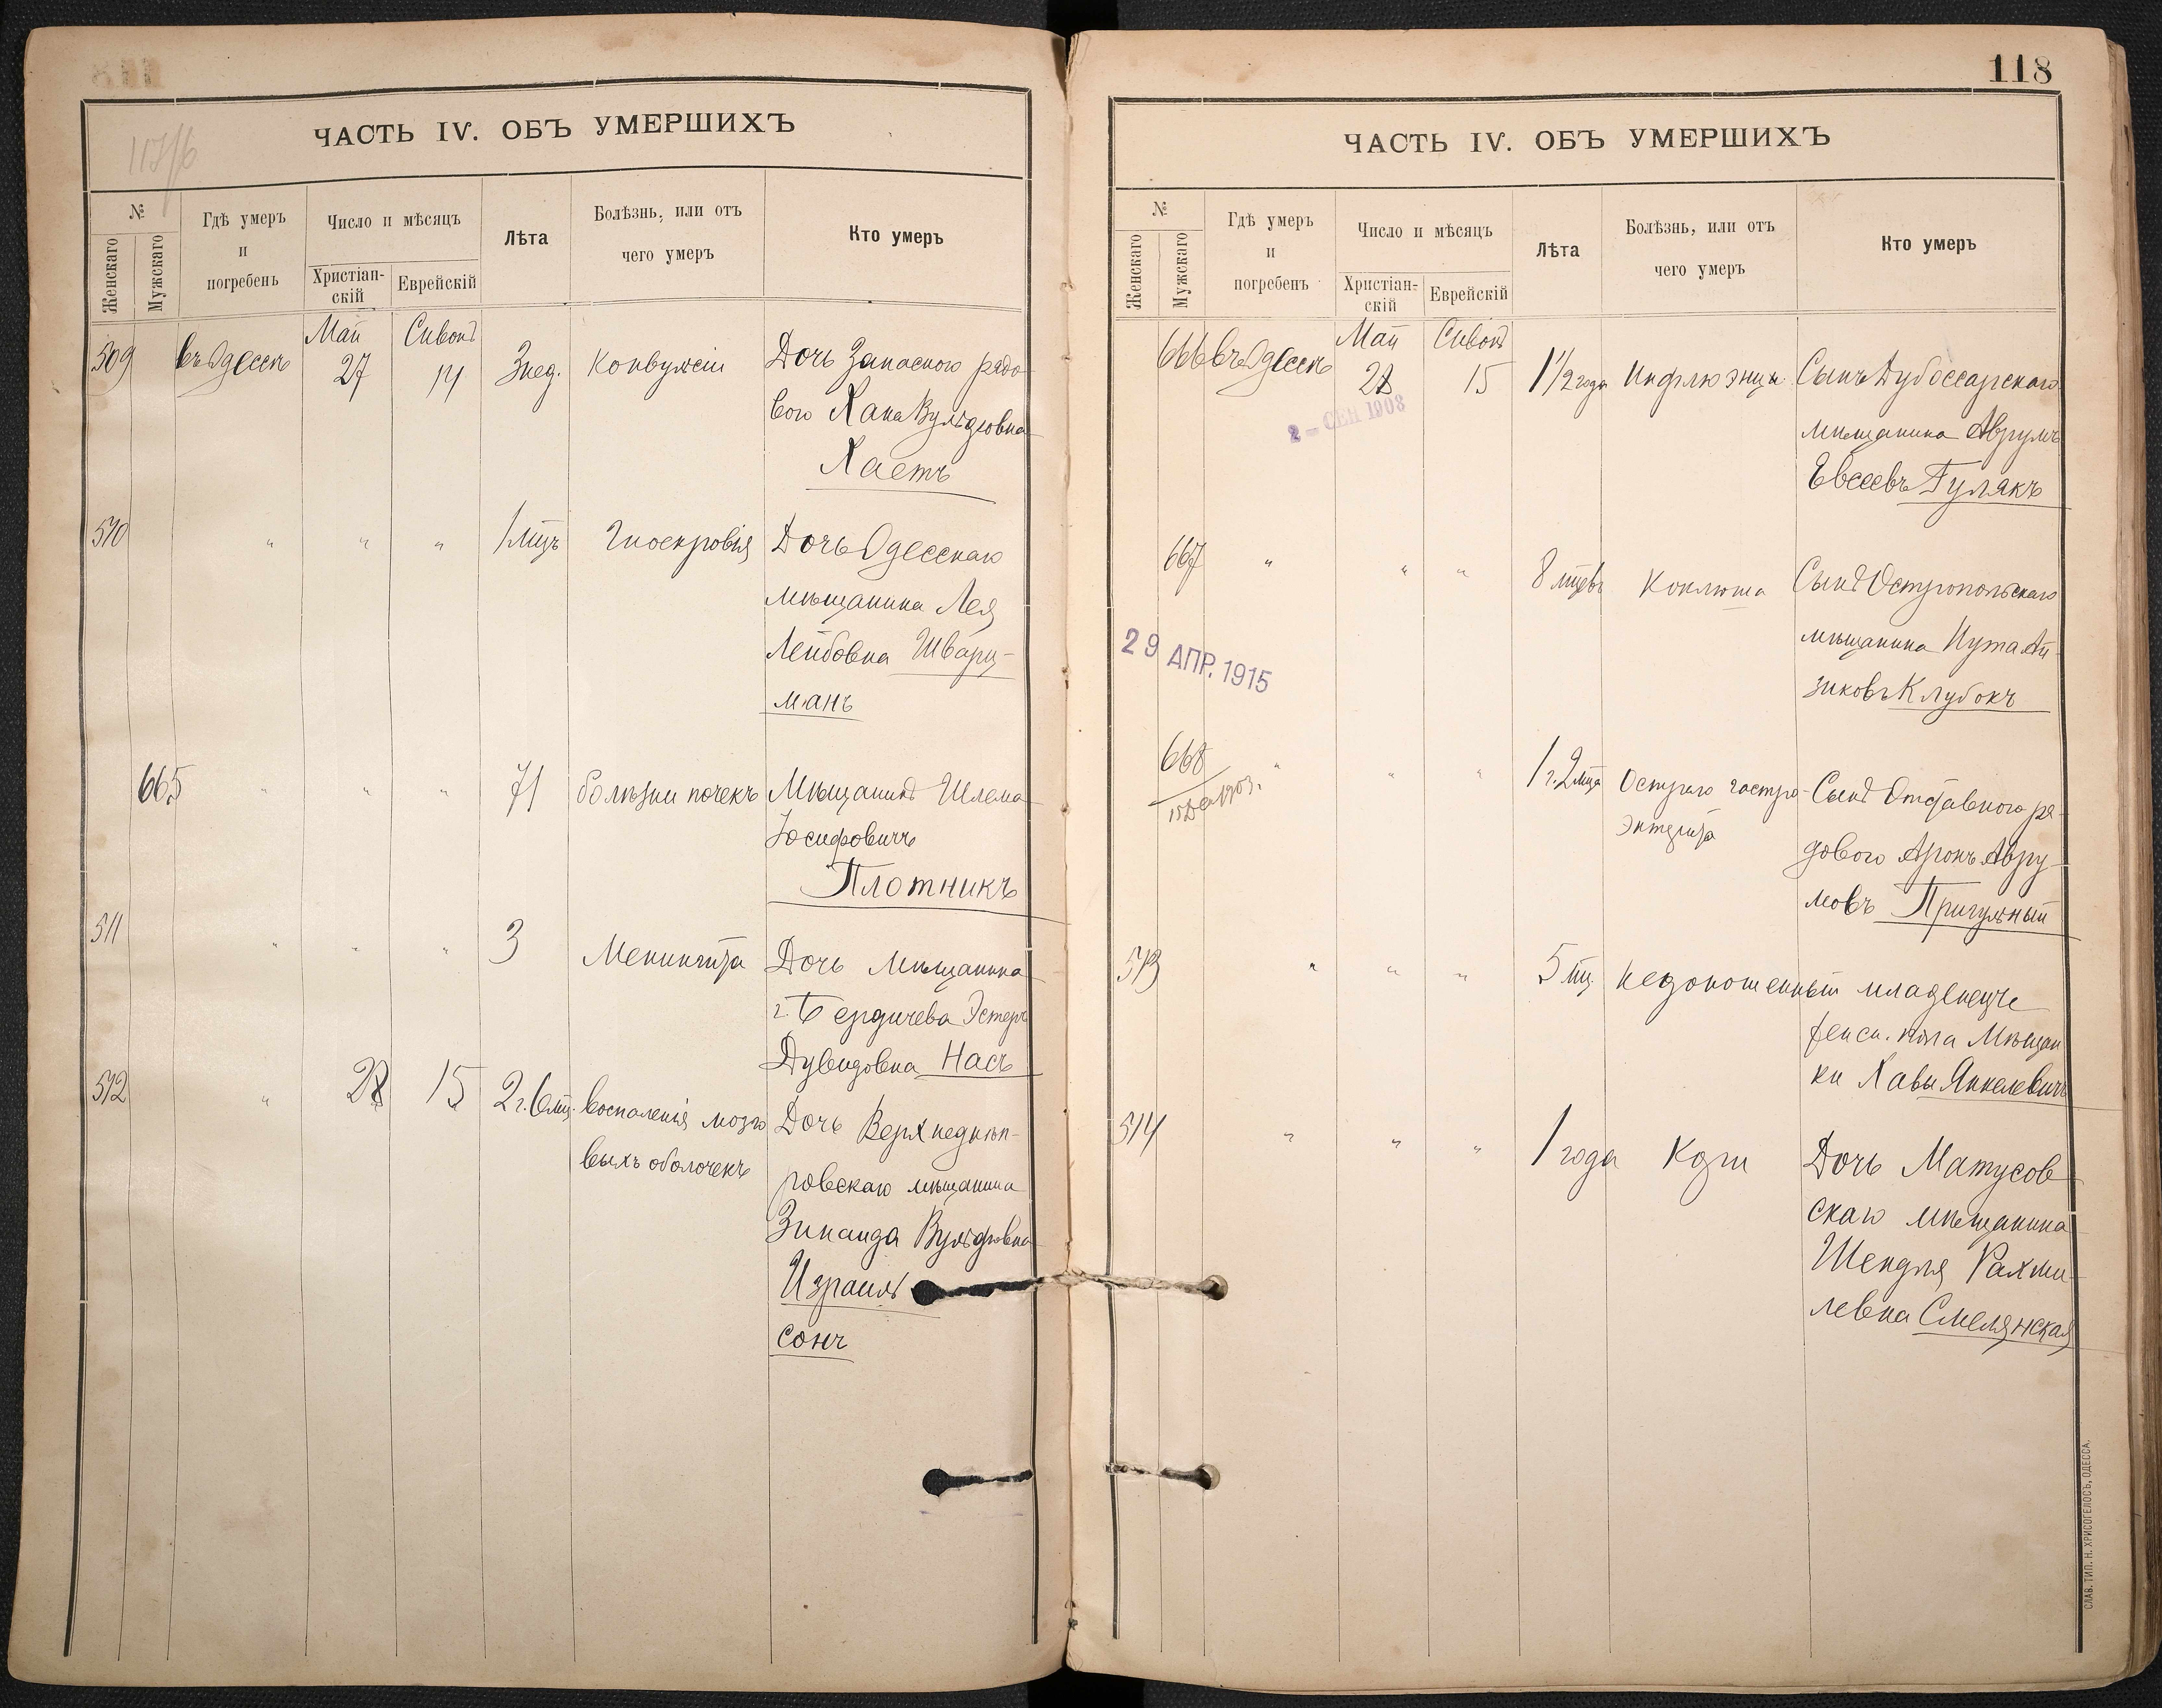 117/б
ЧАСТЬ IV. ОБЪ УМЕРШИХЪ
№
Женскаго
Мужскаго
Гдѣ умеръ
и
погребенъ
Число и мѣсяцъ
Христіан-
скій
Еврейскій
Лѣта
Болѣзнь, или отъ
чего умеръ
Кто умеръ
Май Сивонъ
509 въ Одессѣ 27 14 3 нед. Конвульсіи Дочь Запасного рядо-
вого Хана Вульфовна
Хаетъ
510 " " " 1 мцъ Гноекровія Дочь Одесскаго
мѣщанина Лея
Лейбовна Шварц-
манъ
665 " " " 71 болѣзни почекъ Мѣщанинъ Шлема
Іосифовичъ
Плотникъ
511 " " " 3 Менингита Дочь мѣщанина
г. Бердичева Эстеръ
Дувидовна Насъ
512 " 28 15 2 г. 6 мц. Воспаленія мозго Дочь Верхнеднѣп-
выхъ оболочекъ
ровскаго мѣщанина
Зинаида Вульфовна
Израиль
сонъ
118
ЧАСТЬ IV. ОБЪ УМЕРШИХЪ
№
Женскаго
Мужскаго
Гдѣ умеръ
и
погребенъ
Число и мѣсяцъ
Христіан-
скій
Еврейскій
Лѣта
Болѣзнь, или отъ
чего умеръ
Кто умеръ
Май Сивонъ
666 въ Одессѣ 28 15 1 1/2 года Инфлюэнцы Сынъ Дубоссарскаго
2 - СЕН 1908
мѣщанина Аврумъ
Евсеевъ Гулякъ
667 " " " 8 мцевъ Коклюша Сынъ Остропольскаго
мѣщанина Нута Ай-
зиковъ Клубокъ
29 АПР. 1915
668 " " " 1 г. 2 мца Остраго гастро- Сынъ Отставного ря-
15 Дек 1903.
энтерита
дового Аронъ Авру-
мовъ Пригульный
513 " " " 5 мц. недоношенный младенецъ
женск. пола Мѣщан
ки Хавы Янкелевичъ
514 " " " 1 года Кори Дочь Матусов
скаго мѣщанина
Шендля Рахми-
левна Смелянская
СЛАВ. ТИП. Н. ХРИСОГЕЛОСЪ, ОДЕССА.